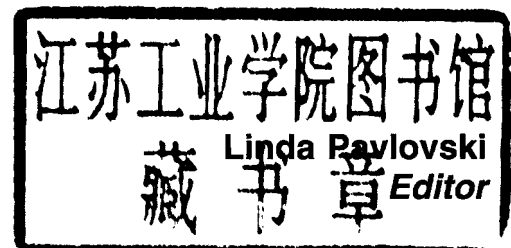 江苏工业学院图书馆
Linda Pavlovski
藏书章
Editor